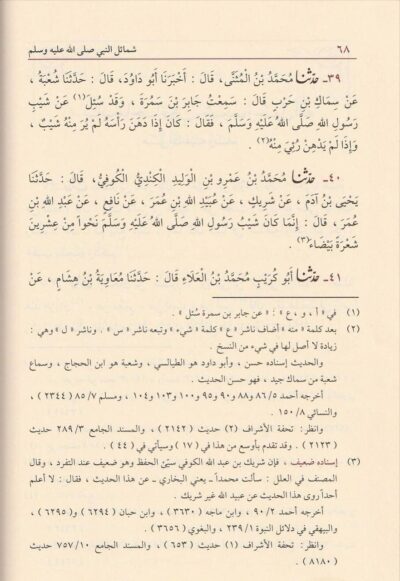 ٦٨ شمائل النبي صلى الله عليه وسلم
٣٩ـ حدّثنا مُحَمَّدُ بْنُ المُثَنَّى، قَالَ : أَخْبَرَنَا أَبُو دَاوُدَ، قَالَ : حَدَّثَنَا شُعْبَةُ ،
عَنْ سِمَاكِ بْنِ حَرْبٍ قَالَ : سَمِعْتُ جَابِرَ بْنَ سَمُرَةَ ، وَقَدْ سُئِلَ(١) عَنْ شَيْبِ
رَسُولِ اللهِ صَلَّى اللهُ عَلَيْهِ وَسَلَّمَ ، فَقَالَ : كَانَ إِذَا دَهَنَ رَأْسَهُ لَمْ يُرَ مِنْهُ شَيْبٌ ،
وَإِذَا لَمْ يَدْهِنْ رُئِيَ مِنْهُ(٢) .
٤٠ـ حدّثنا مُحَمَّدُ بْنُ عَمْرِو بْنِ الْوَلِيدِ الْكِنْدِيُّ الْكُوفِيُّ، قَالَ : حَدَّثَنَا
يَحْيَى بْنُ آدَمَ ، عَنْ شَرِيكٍ ، عَنْ عُبَيْدِ اللهِ بْنِ عُمَرَ ، عَنْ نَافِعٍ ، عَنْ عَبْدِ اللهِ بْنِ
عُمَرَ ، قَالَ : إِنَّمَا كَانَ شَيْبُ رَسُولِ اللهِ صَلَّى اللهُ عَلَيْهِ وَسَلَّمَ نَحْواً مِنْ عِشْرِينَ
شَعْرَةً بَيْضَاءَ(٣) .
٤١ـ حدّثنا أَبُو كُرَيْبٍ مُحَمَّدُ بْنُ الْعَلاَءِ قَالَ : حَدَّثَنَا مُعَاوِيَةُ بْنُ هِشَامٍ ، عَنْ
(١) في « أ ، و ، ع » : « عن جابر بن سمرة سُئل » .
(٢) بعد كلمة « منه » أضاف ناشر « ع » كلمة « شيء » وتبعه ناشر « س » . وناشر « ل » وهي :
زيادة لا أصل لها في شيء من النسخ .
والحديث إسناده حسن ، وأبو داود هو الطيالسي ، وشعبة هو ابن الحجاج ، وسماع
شعبة من سماك جيد ، فهو حسن الحديث .
أخرجه أحمد ٥/ ٨٦ و٨٨ و٩٠ و٩٥ و١٠٠ و١٠٣ و١٠٤ ، ومسلم ٧/ ٨٥ ( ٢٣٤٤ ) ،
والنسائي ٨/ ١٥٠ .
وانظر: تحفة الأشراف (٢) حديث ( ٢١٤٢ ) ، والمسند الجامع ٣/ ٢٨٩ حديث
( ٢١٢٣ ) . وقد تقدم بأوسع من هذا في ( ١٧ ) وسيأتي في ( ٤٤ ) .
(٣) إسناده ضعيف ، فإن شريك بن عبد الله الكوفي سيّئ الحفظ وهو ضعيف عند التفرد ، وقال
المصنف في العلل : سألت محمداً ـ يعني البخاري ـ عن هذا الحديث ، فقال : لا أعلم
أحداً روى هذا الحديث عن عبيد الله غير شريك .
أخرجه أحمد ٢/ ٩٠ ، وابن ماجه ( ٣٦٣٠ ) ، وابن حبان ( ٦٢٩٤ ) و( ٦٢٩٥ ) ،
والبيهقي في دلائل النبوة ١/ ٢٣٩ ، والبغوي ( ٣٦٥٦ ) .
وانظر: تحفة الأشراف (١) حديث ( ٦٥٣ ) ، والمسند الجامع ١٠/ ٧٥٧ حديث
( ٨١٨٠ ) .